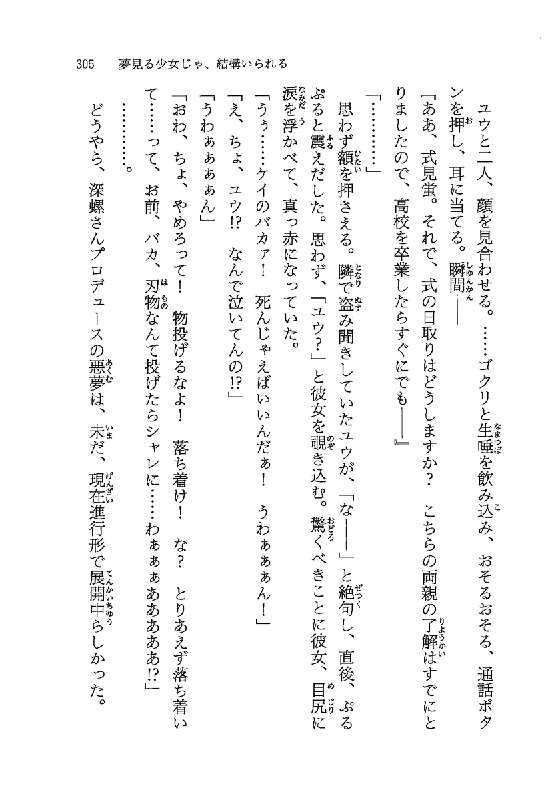 305　夢見る少女じゃ、結構いられる
　ユウと二人、顔を見合わせる。……ゴクリと生唾を飲み込み、おそるおそる、通話ボタ
ンを押し、耳に当てる。瞬間――
『ああ、式見蛍。それで、式の日取りはどうしますか？　こちらの両親の了解はすでにと
りましたので、高校を卒業したらすぐにでも――』
「…………」
　思わず額を押さえる。隣で盗み聞きしていたユウが、「な――」と絶句し、直後、ぷる
ぷると震えだした。思わず、「ユウ？」と彼女を覗き込む。驚くべきことに彼女、目尻に
涙を浮かべて、真っ赤になっていた。
「うぅ……ケイのバカァ！　死んじゃえばいいんだぁ！　うわぁぁぁん！」
「え、ちょ、ユウ!?　なんで泣いてんの!?」
「うわぁぁぁぁん」
「おわ、ちょ、やめろって！　物投げるなよ！　落ち着け！　な？　とりあえず落ち着い
て……って、お前、バカ、刃物なんて投げたらシャレに……わぁぁぁあああああ!?」
…………。
　どうやら、深螺さんプロデュースの悪夢は、未だ、現在進行形で展開中らしかった。